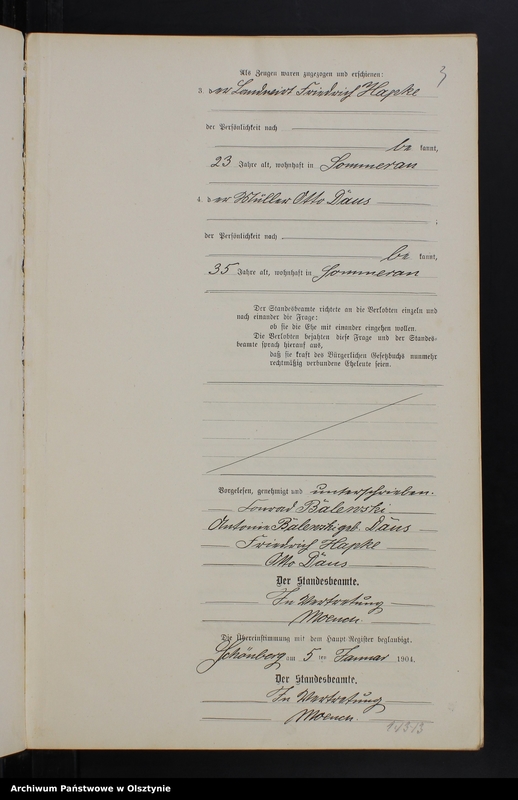 3
Als Zeugen waren zugezogen und erschienen:
3. der Landwirt Friedrich Hapke
der Persönlichkeit nach
be kannt,
23 Jahre alt, wohnhaft in Sommerau
4. der Müller Otto Däus
;
der Persönlichkeit nach
be kannt,
35 Jahre alt, wohnhaft in Sommerau
Der Standesbeamte richtete an die Verlobten einzeln und
nach einander die Frage:
ob sie die Ehe mit einander eingehen wollen.
Die Verlobten bejahten diese Frage und der Standes-
beamte sprach hierauf aus,
daß sie kraft des Bürgerlichen Gesetzbuchs nunmehr
rechtmäßig verbundene Eheleute seien.
Vorgelesen, genehmigt und unterschrieben.
Conrad Balewski
Antonie Balewski geb. Däus
Friedrich Hapke
Otto Däus
Der Standesbeamte.
In Vertretung
Moench
Die Übereinstimmung mit dem Haupt Register beglaubigt.
Schönberg am 5 ten Januar 1904.
Der Standesbeamte.
In Vertretung
Moench
Archiwum Państwowe w Olsztynie